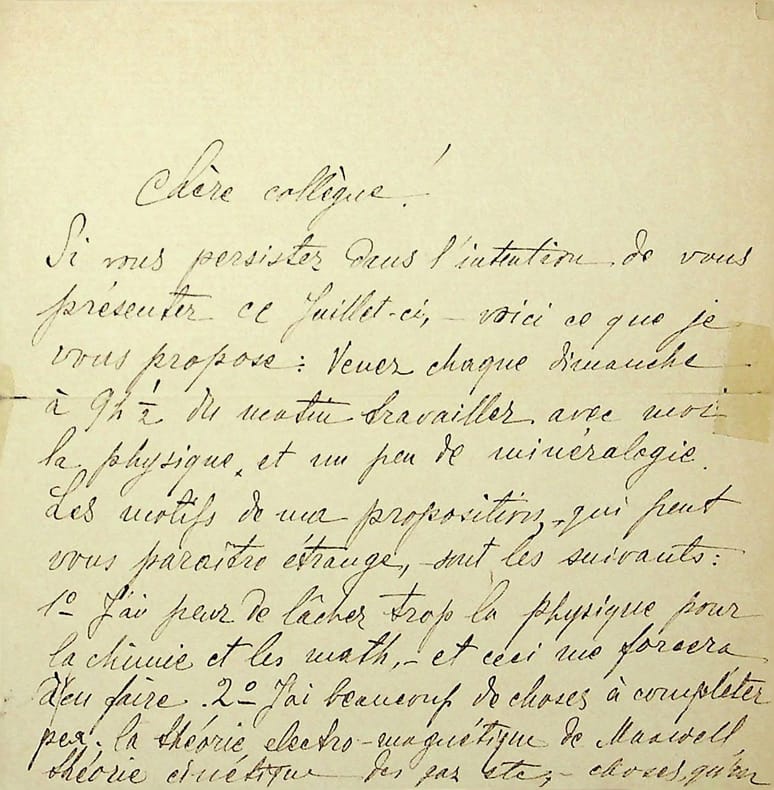 Chère collègue!
Si vous persistez dans l'intention de vous
présenter ce Juillet-ci, – voici ce que je
vous propose: Venez chaque dimanche
à 9h ½ du matin travailler avec moi
la physique et un peu de minéralogie.
Les motifs de ma proposition, qui peut
vous paraître étrange, – sont les suivants:
1º J'ai peur de lâcher trop la physique pour
la chimie et les math, – et ceci me forcera
à en faire. 2º J'ai beaucoup de choses à compléter
la théorie electro-magnétique de Maxwell
théorie cinétique des gaz etc, – choses qu'on